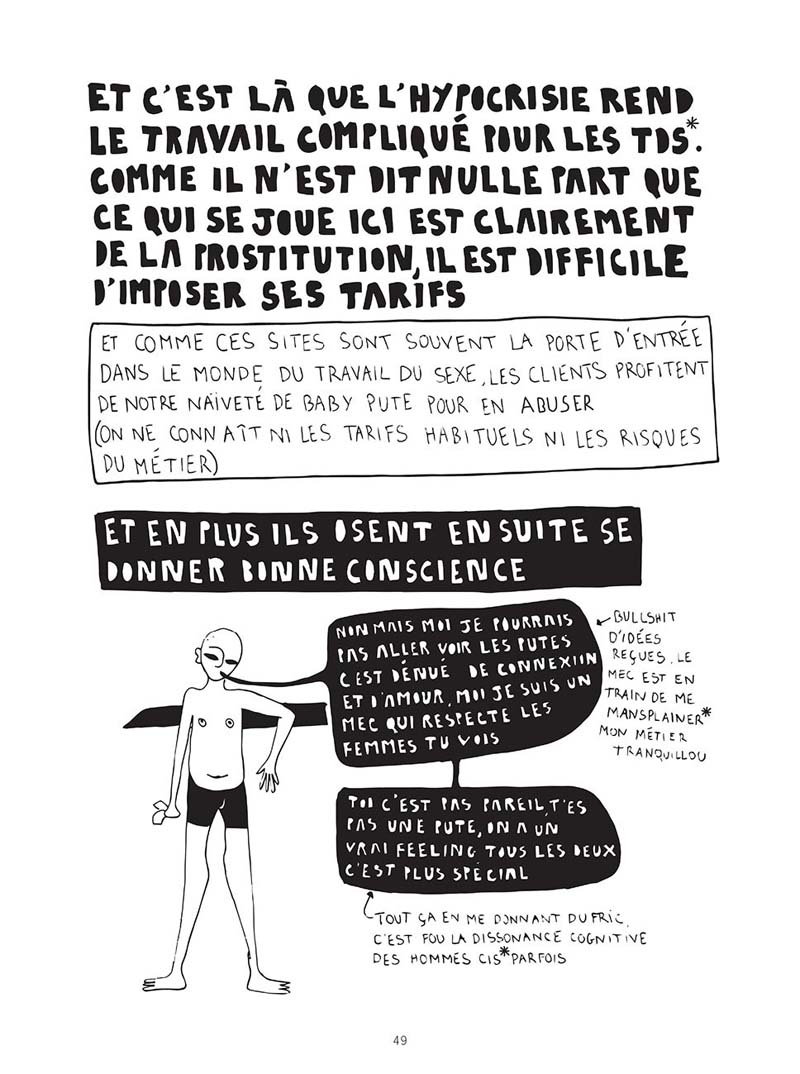 ET C'EST LÀ QUE L'HYPOCRISIE REND
LE TRAVAIL COMPLIQUÉ POUR LES TDS*.
COMME IL N'EST DIT NULLE PART QUE
CE QUI SE JOUE ICI EST CLAIREMENT
DE LA PROSTITUTION, IL EST DIFFICILE
D'IMPOSER SES TARIFS
ET COMME CES SITES SONT SOUVENT LA PORTE D'ENTRÉE
DANS LE MONDE DU TRAVAIL DU SEXE, LES CLIENTS PROFITENT
DE NOTRE NAÏVETÉ DE BABY PUTE POUR EN ABUSER
(ON NE CONNAÎT NI LES TARIFS HABITUELS NI LES RISQUES
DU MÉTIER)
ET EN PLUS ILS OSENT ENSUITE SE
DONNER BONNE CONSCIENCE
NON MAIS MOI JE POURRAIS
PAS ALLER VOIR LES PUTES
C'EST DÉNUÉ DE CONNEXION
ET D'AMOUR, MOI JE SUIS UN
MEC QUI RESPECTE LES
FEMMES TU VOIS
BULLSHIT
D'IDÉES
REÇUES. LE
MEC EST EN
TRAIN DE ME
MANSPLAINER*
MON MÉTIER
TRANQUILLOU
TOI C'EST PAS PAREIL, T'ES
PAS UNE PUTE, ON A UN
VRAI FEELING TOUS LES DEUX
C'EST PLUS SPÉCIAL
TOUT ÇA EN ME DONNANT DU FRIC,
C'EST FOU LA DISSONANCE COGNITIVE
DES HOMMES CIS* PARFOIS
49